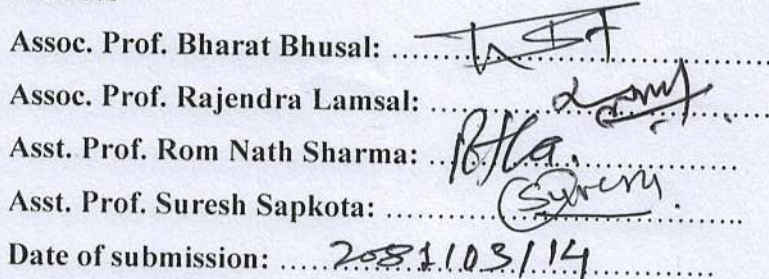 Assoc. Prof. Bharat Bhusal: ........................
Assoc. Prof. Rajendra Lamsal: ........................
Asst. Prof. Rom Nath Sharma: ........................
Asst. Prof. Suresh Sapkota: ........................
Date of submission: 2081/03/14